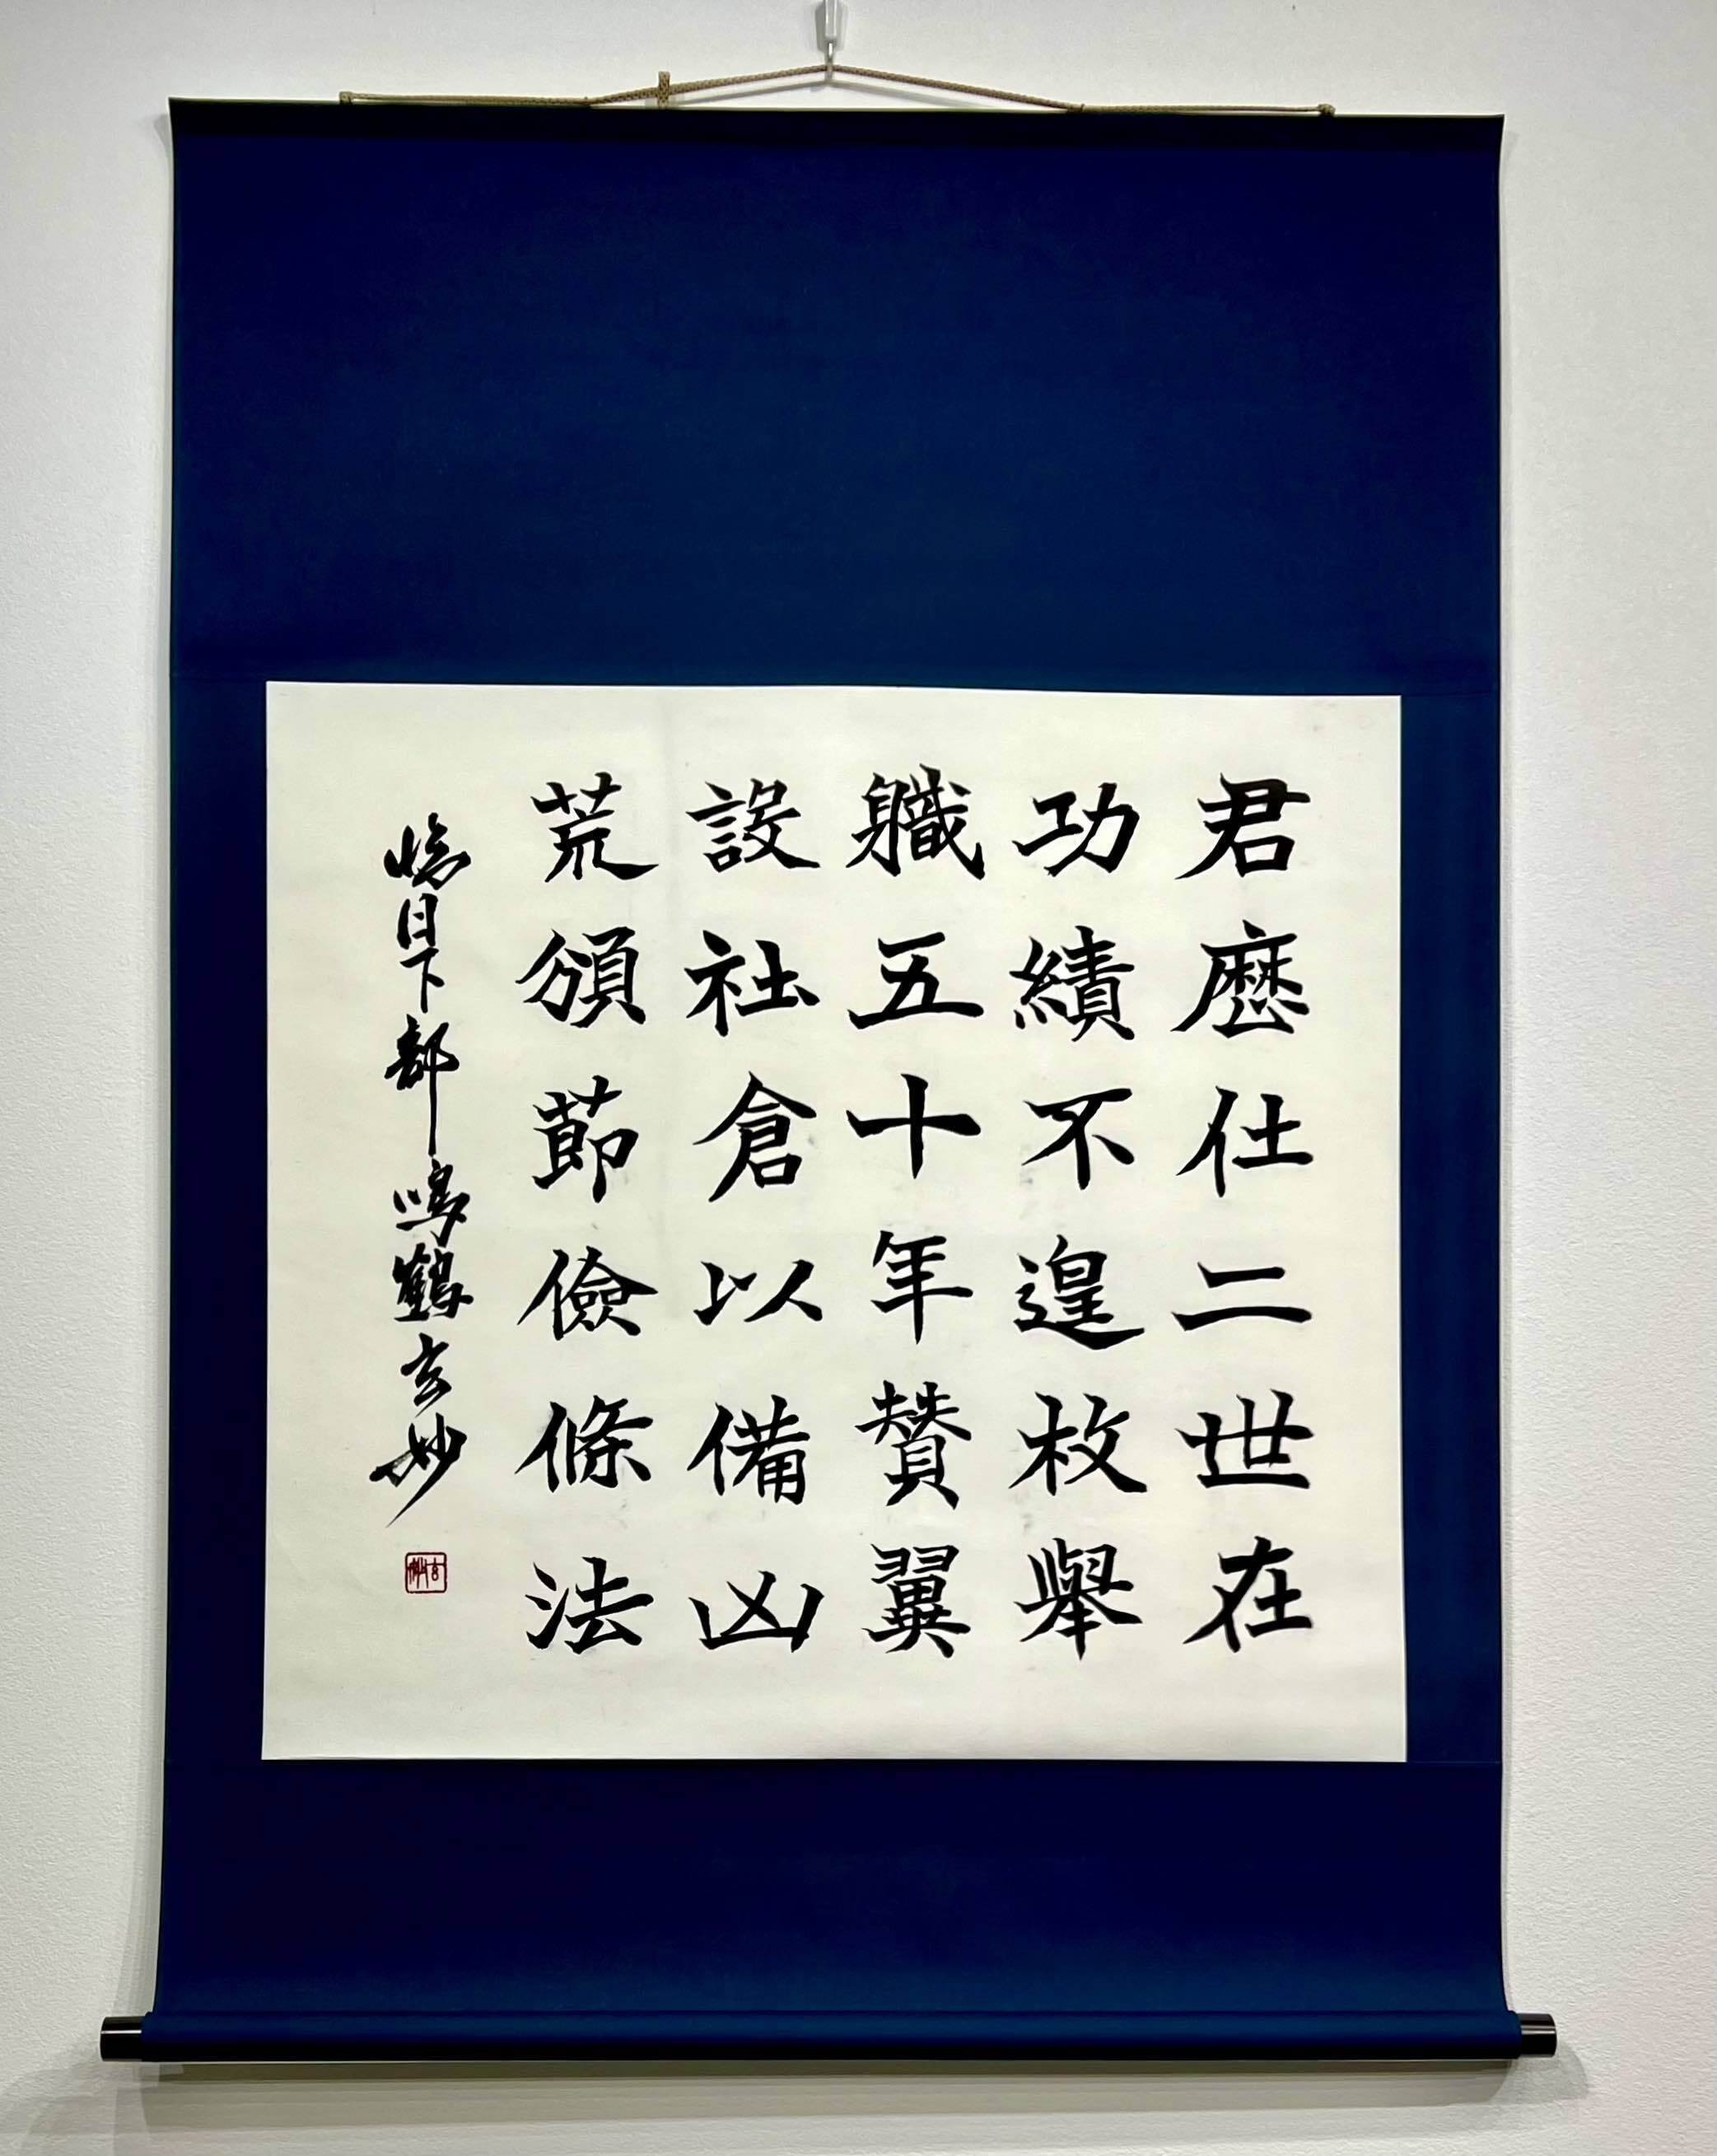 君歴仕二世在
功績不遑枚舉
軄五十年賛翼
設社倉以備凶
荒頒節儉條法
臨日下部鳴鶴玄妙